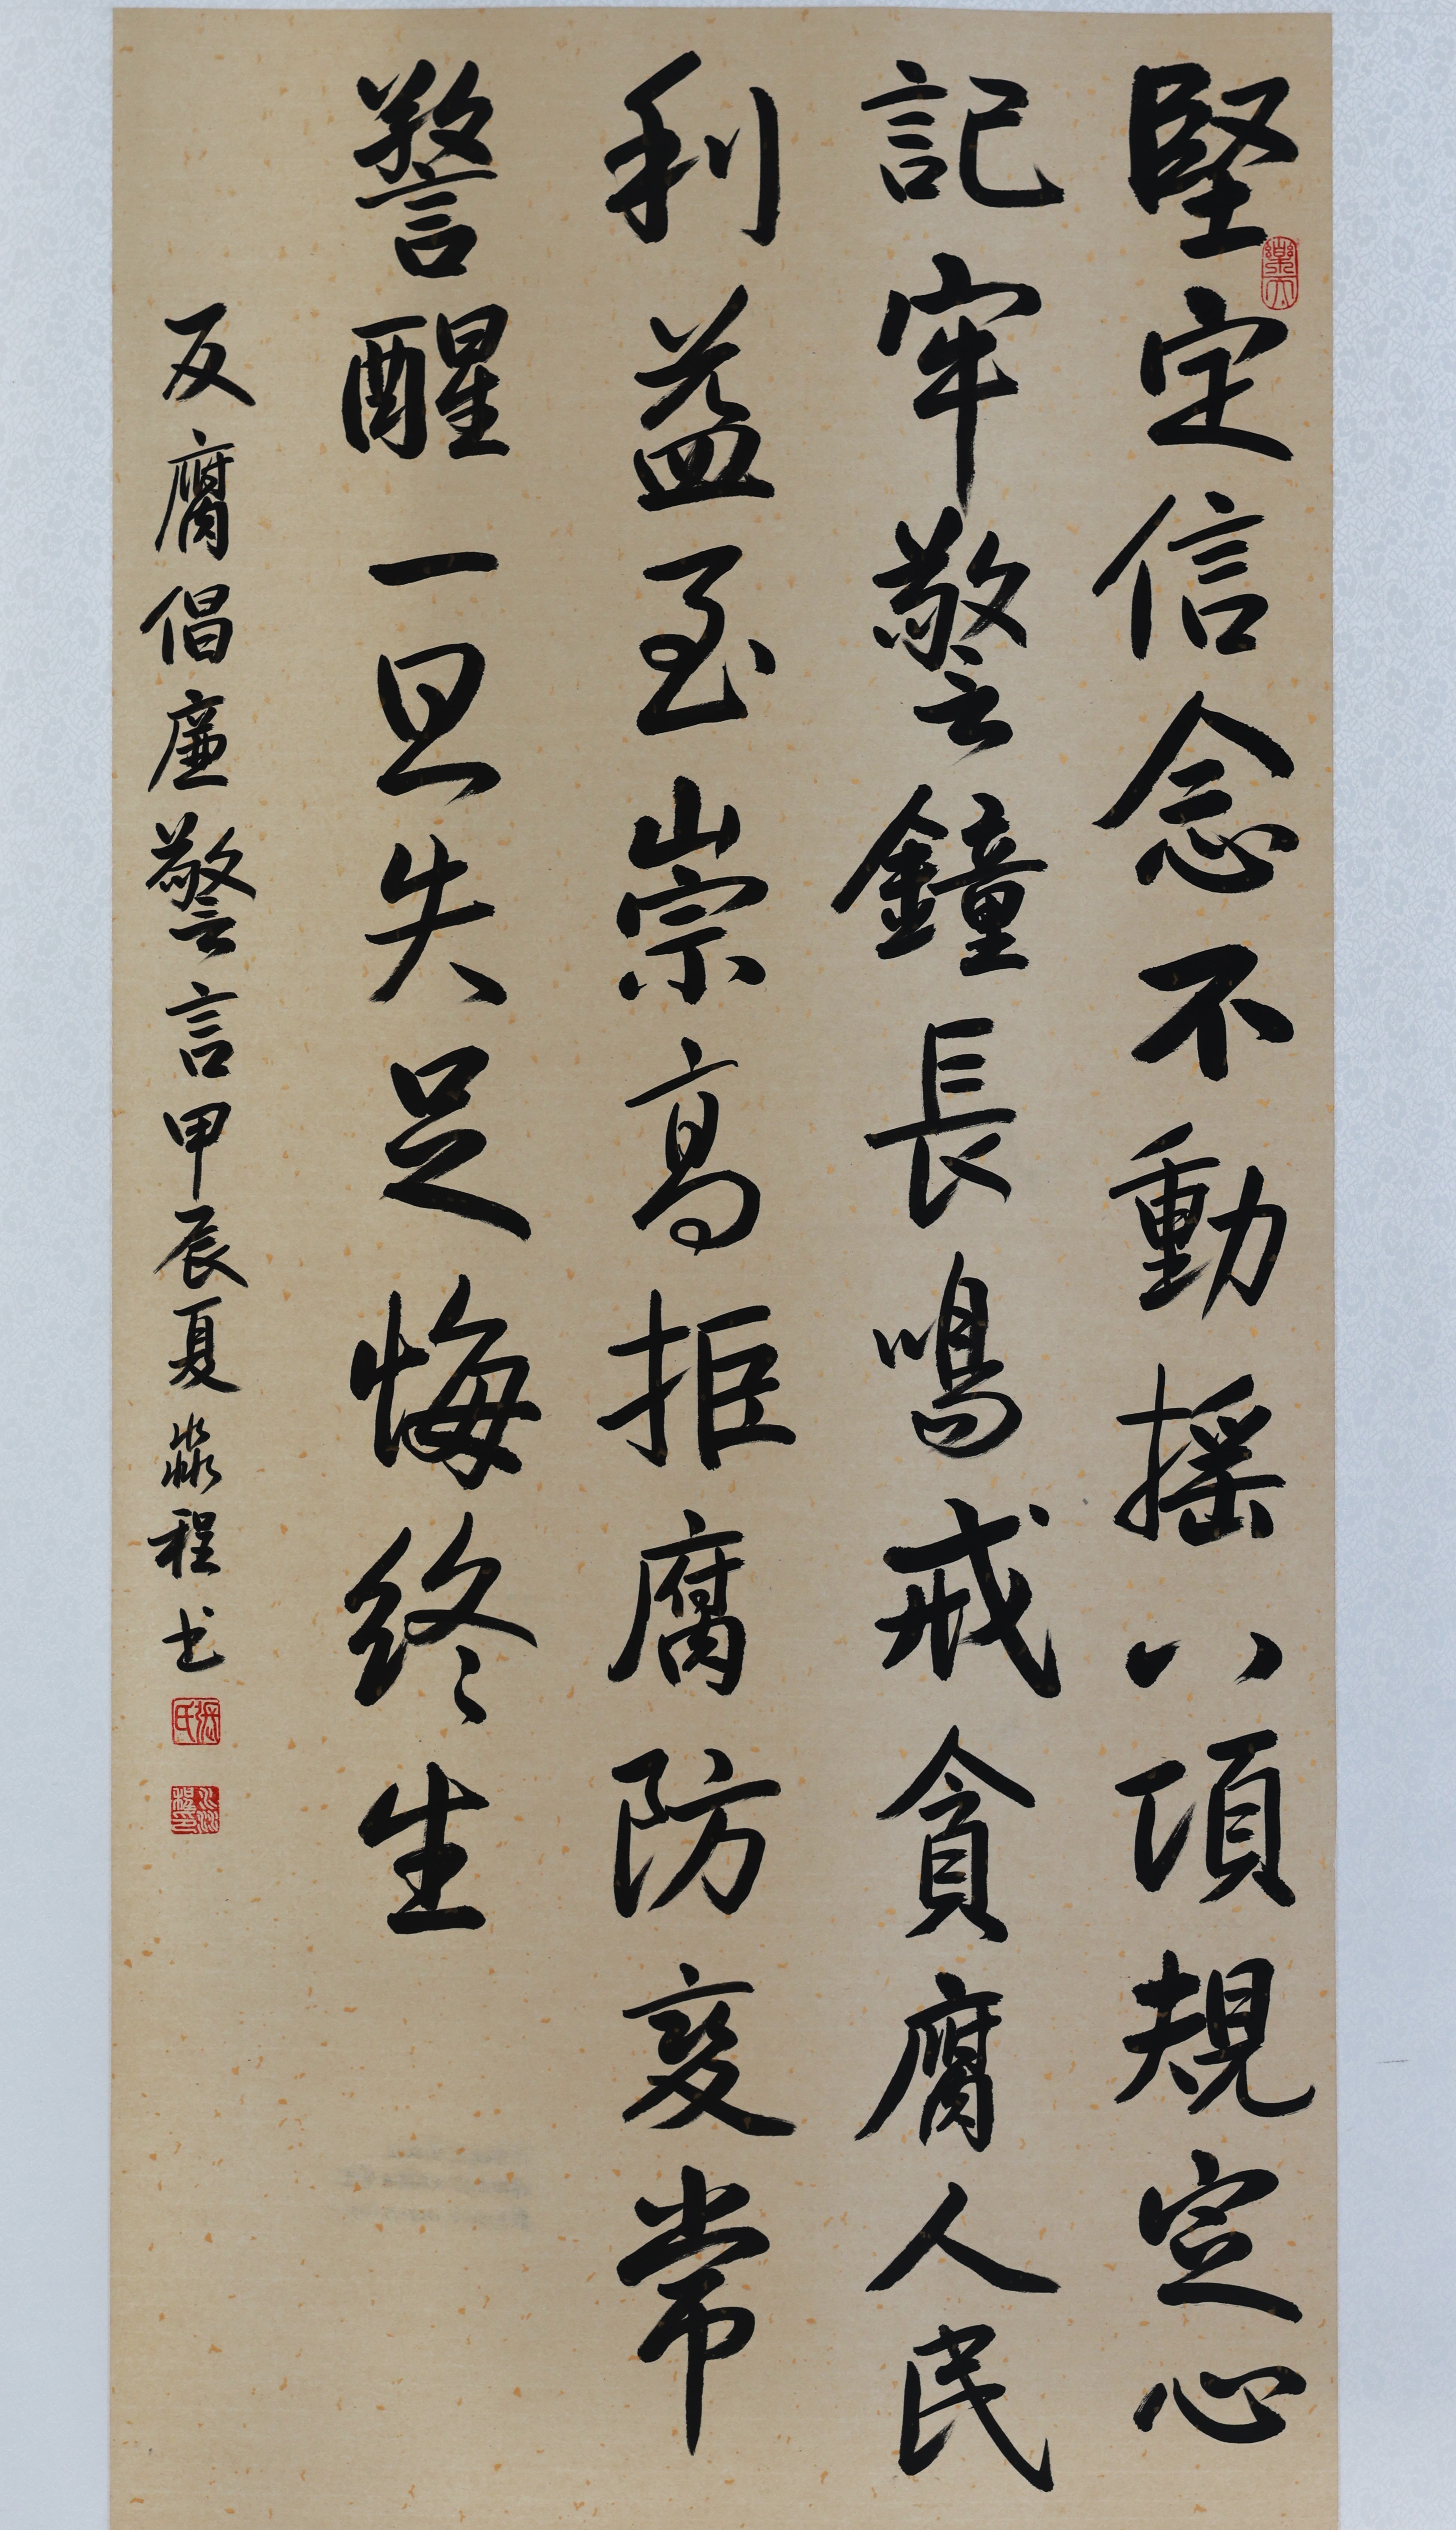 堅定信念不動摇八項規定心
記牢警鐘長鳴戒貪腐人民
利益至崇高拒腐防變常
警醒一旦失足悔終生
反腐倡廉警言甲辰夏淼程书